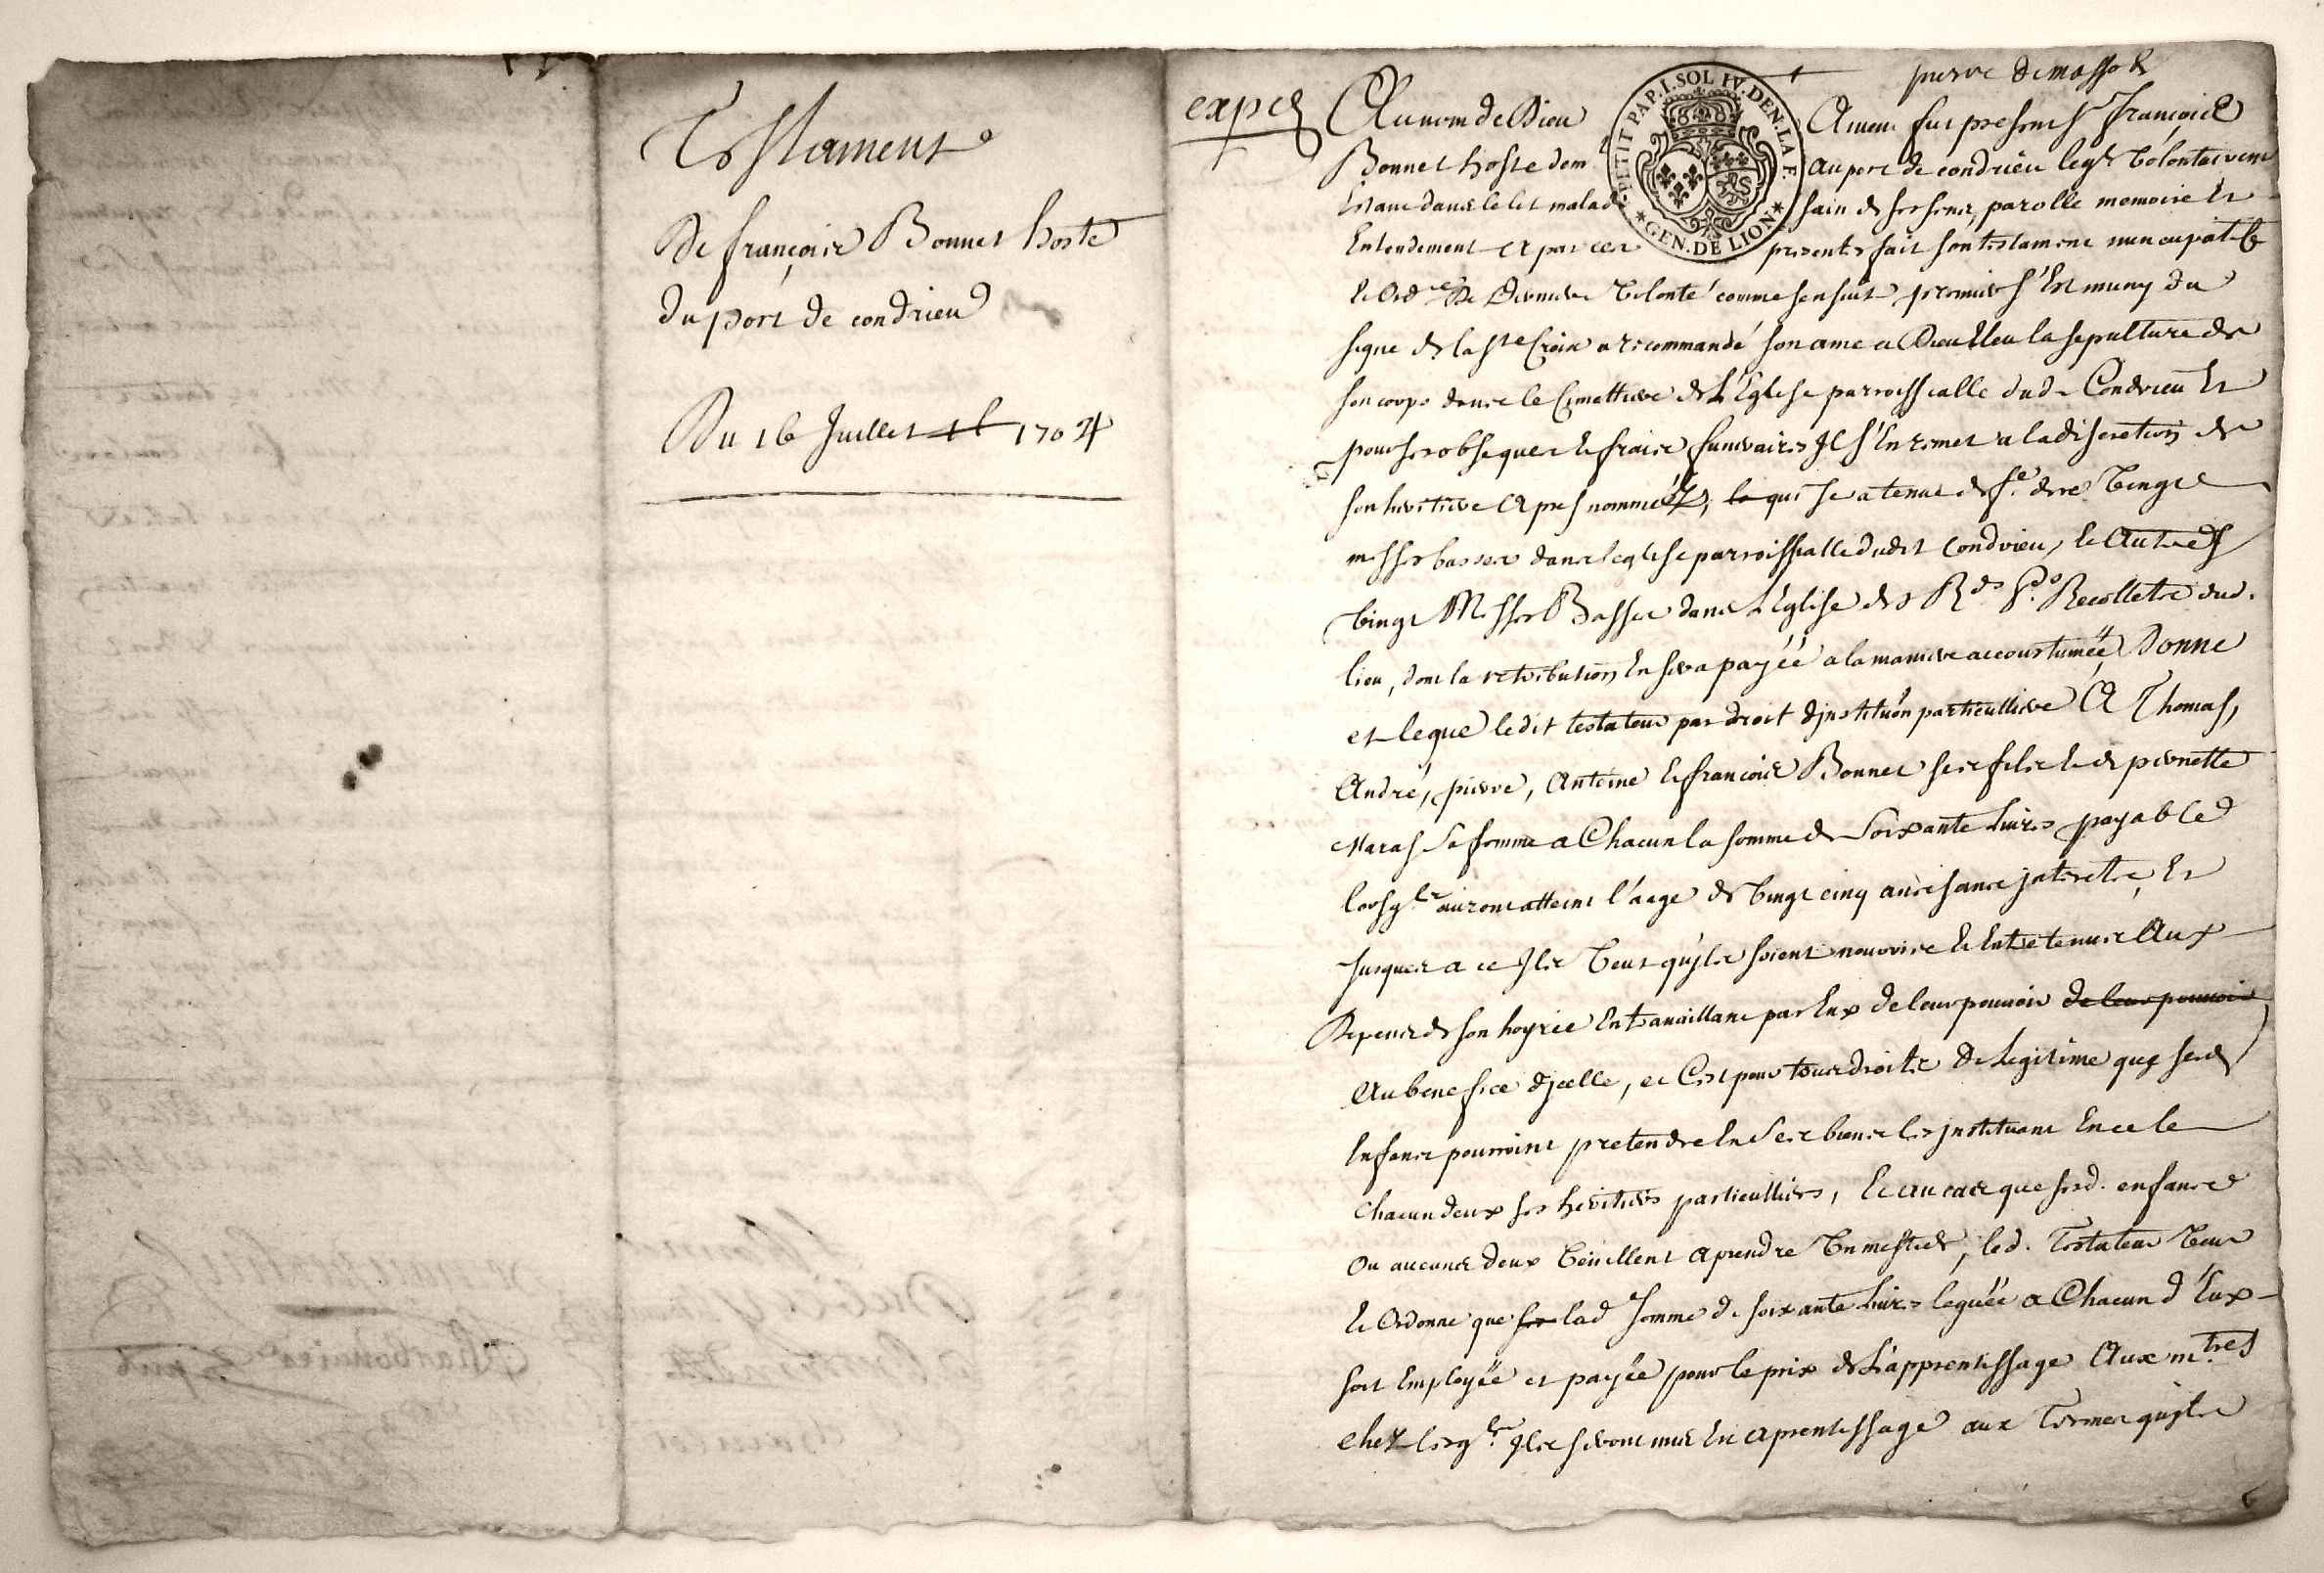 Testament
De françois Bonnet hoste
du port de condrieu
Du 16 Juillet 1704
exped
pierre demasso
PETIT PAP. I. SOL IV. DEN. LA F.
GEN. DE LION
Au nom de Dieu Amen fut present sr françois
Bonnet hoste dem au port de condrieu leql volontairemt
Estant dans le lit malade sain de ses sens, parolle memoire Et
Entendement a par ces presentes fait son testament nuncupatif
Et ordce de derniere volonté comme sensuit premier s'Est muny du
signe de la ste Croix a recommandé son ame a Dieu Eleu la sepulture de
son corps dans le Cimettiere de L'Eglise parroissialle dud. Condrieu Et
pour ses obseques Et frais funeraires Il s'En remet a la discretion de
son heritiere Apres nommée, qui sera tenue de fe. dire vingt
messes basses dans leglise parroissialle dudit Condrieu, Et Autres
vingt Messes Basses dans L'Eglise des Rds Ps. Recollets dud.
lieu, dont la retribution En sera payée a la maniere accoustumée, Donne
et legue ledit testateur par droit d'jnstituon particulliere A Thomas,
André, pierre, Antoine Et francois Bonnet ses fils Et de piernette
Maras sa femme a Chacun la somme de Soixante livres payable
lorsqls auront atteint l'aage de Vingt cinq ans sans jnterets, Et
Jusques a ce Ils Veut quils soient nourris Et Entretenus Aux
Depens de son hoyrie En travaillant par Eux de leur pouvoir de leur pouvoir
Au benefice d'jcelle, et C'est pour tous droits De Legitime que sesd
Enfans pourroint pretendre En Ses biens les jnstituant En ce le
Chacun deux ses heritiers particulliers, Et au cas que sesd. enfans
Ou aucuns deux veuillent aprendre Un mestier, led. Testateur veut
Et Ordonne que lad somme de soixante livres leguée a Chacun d'Eux
soit Employée et payée pour le prix de L'apprentissage Aux mtres
chez lesqls Ils seront mis En aprentissage aux Termes quils